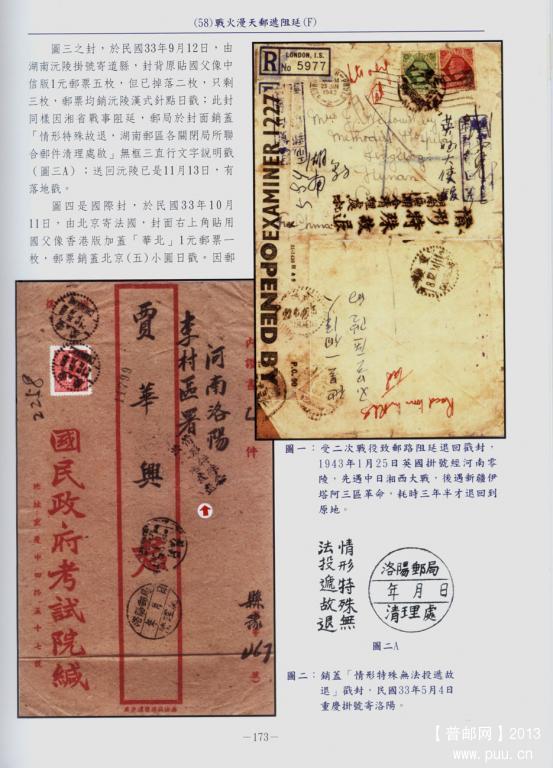 (58)戰火漫天郵遞阻廷(F)
圖三之封，於民國33年9月12日，由
湖南沅陵掛號寄道縣，封背原貼國父像中
信版1元郵票五枚，但已掉落二枚，只剩
三枚，郵票均銷沅陵漢式針點日戳；此封
同樣因湘省戰事阻延，郵局於封面銷蓋
「情形特殊故退，湖南郵區各關閉局所聯
合郵件清理處啟」無框三直行文字說明戳
（圖三A）；送回沅陵已是11月13日，有
落地戳。
圖四是國際封，於民國33年10月
11日，由北京寄法國，封面右上角貼用
國父像香港版加蓋「華北」1元郵票一
枚，郵票銷蓋北京(五)小圓日戳。因郵
LONDON, I.S.
R No 5977
OPENED BY EXAMINER 1227
P.C.90
情形特殊故退
China
河南洛陽
李村區署
賈華興
2258
國民政府考試院緘
圖一：受二次戰役致郵路阻延退回戳封，
1943年1月25日英國掛號經河南零
陵，先遇中日湘西大戰，後遇新疆伊
塔阿三區革命，耗時三年半才退回到
原地。
情形特殊無
法投遞故退
洛陽郵局
年 月 日
清理處
圖二A
圖二：銷蓋「情形特殊無法投遞故
退」戳封，民國33年5月4日
重慶掛號寄洛陽。
－173－
【普邮网】2013
www.puu.cn